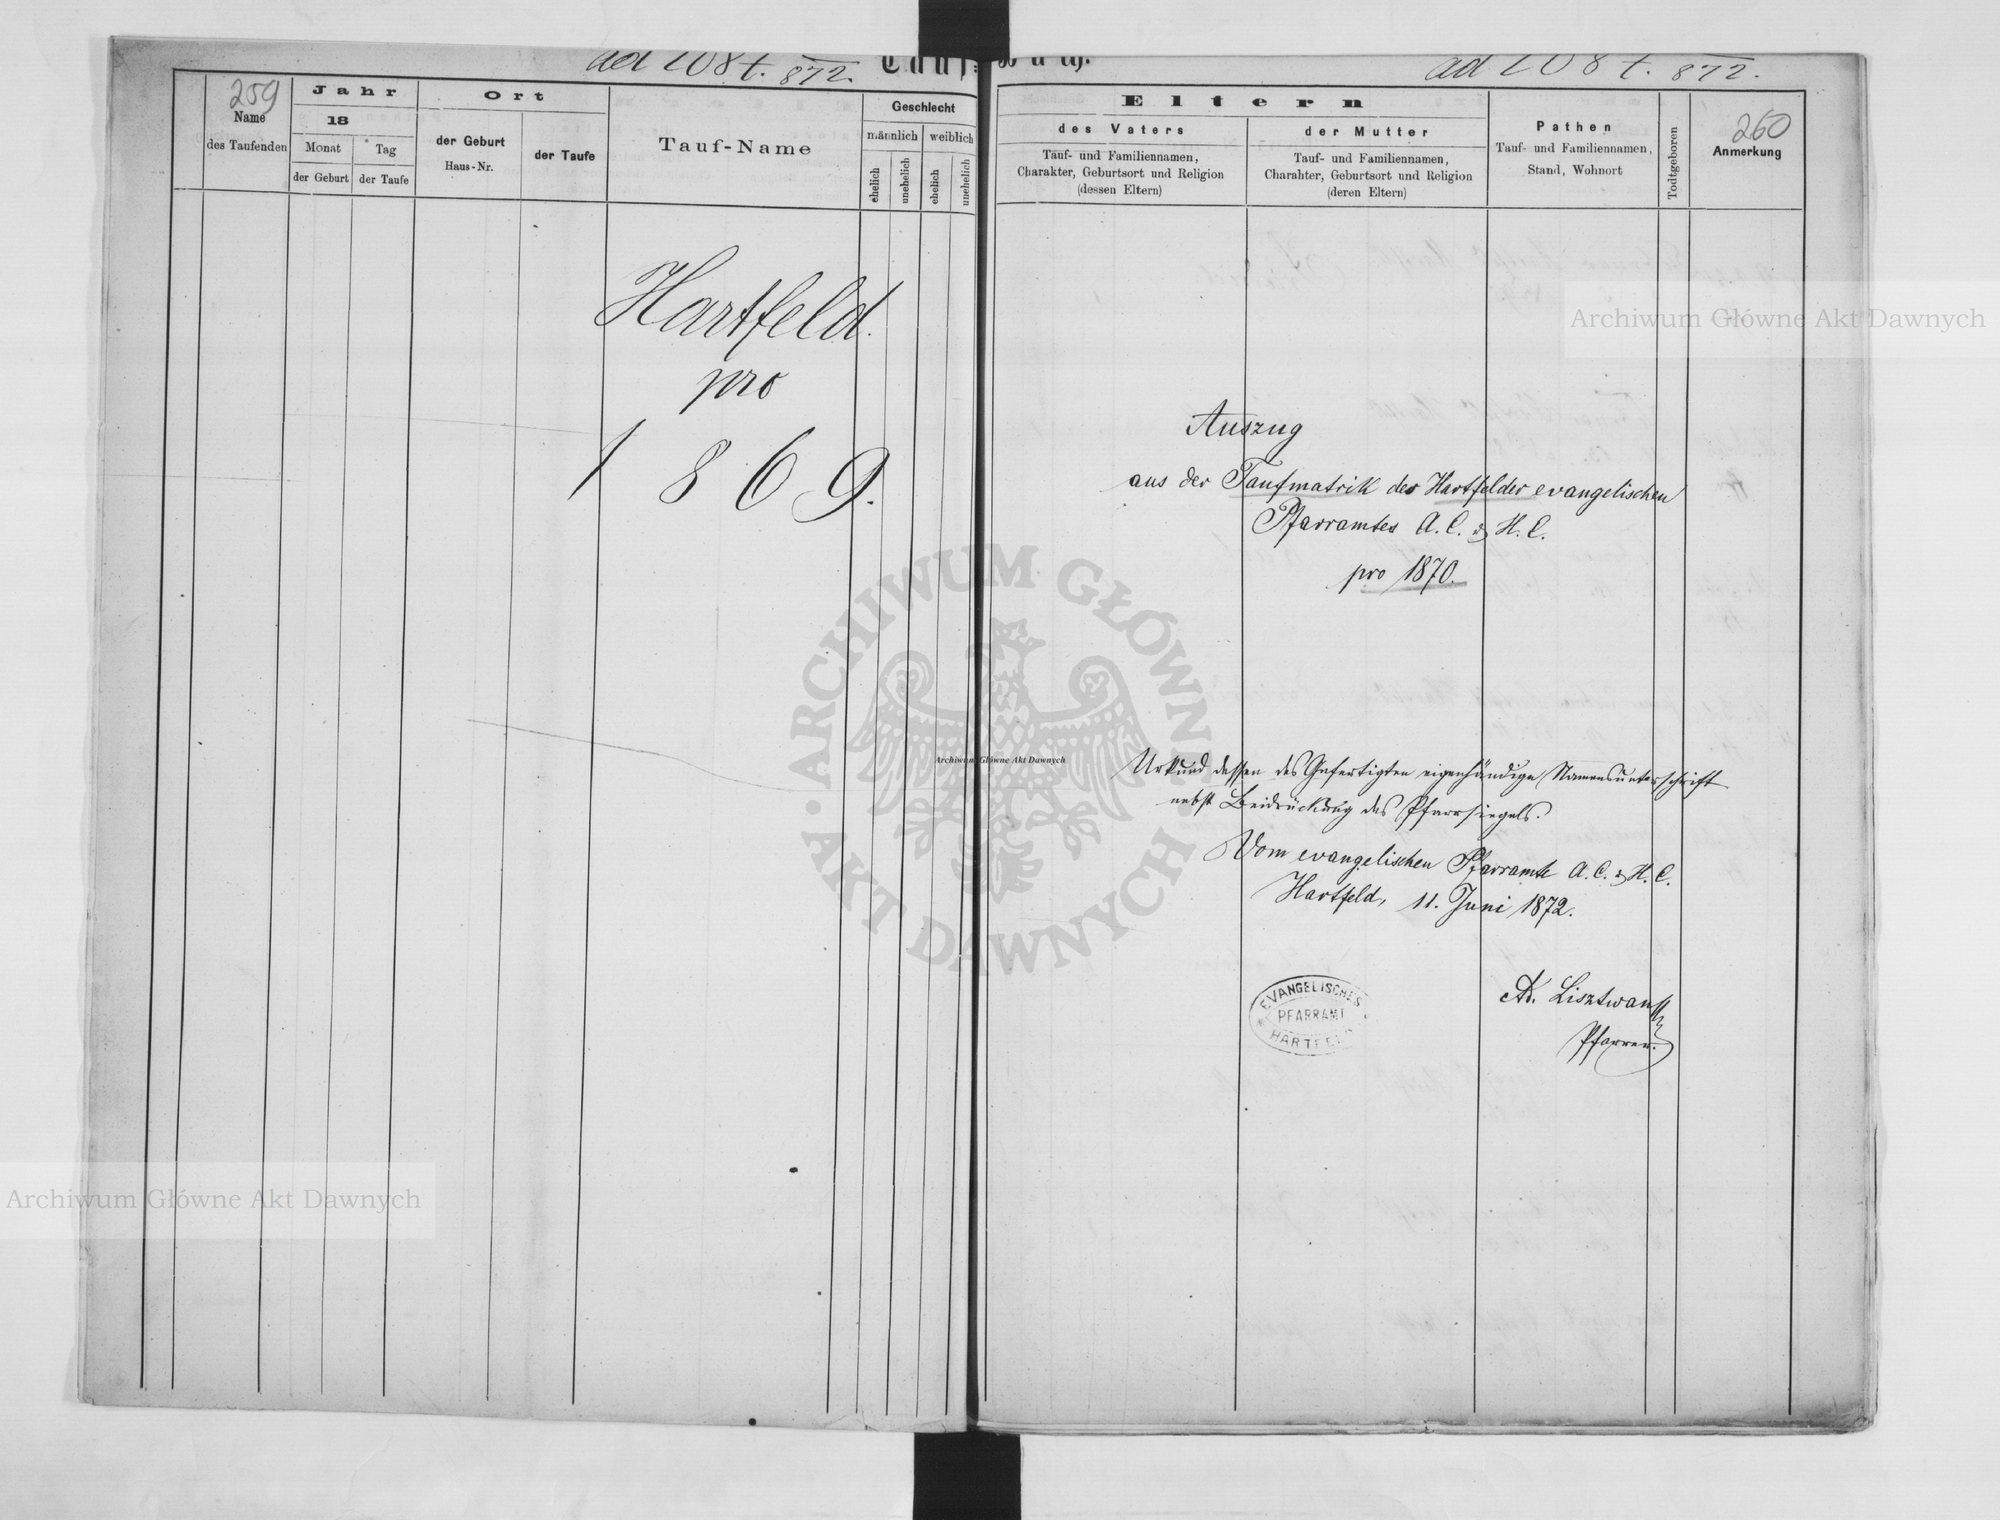 ad 108 t. 872.
Taufbuch.
ad 108 t. 872.
259
Name
des Taufenden
Jahr
18
Monat
der Geburt
Tag
der Taufe
Ort
der Geburt
Haus-Nr.
der Taufe
Tauf-Name
Geschlecht
männlich
weiblich
ehelich
unehelich
ehelich
unehelich
Hartfeld.
pro
1869.
Eltern
des Vaters
Tauf- und Familiennamen,
Charakter, Geburtsort und Religion
(dessen Eltern)
der Mutter
Tauf- und Familiennamen,
Charahter, Geburtsort und Religion
(deren Eltern)
Pathen
Tauf- und Familiennamen,
Stand, Wohnort
Todtgeboren
260
Anmerkung
Auszug
aus der Taufmatrik des Hartfelder evangelischen
Pfarramtes A. C. & H. C.
pro 1870.
Urkund dessen des Gefertigten eigenhändige Namensunterschrift
nebst Beidrückung des Pfarrsiegels.
Vom evangelischen Pfarramte A. C. & H. C.
Hartfeld, 11. Juni 1872.
EVANGELISCHES
PFARRAMT
HARTFEL
Lisztwan
Pfarrer.
Archiwum Główne Akt Dawnych
Archiwum Główne Akt Dawnych
Archiwum Główne Akt Dawnych
ARCHIWUM GŁÓWNE
AKT DAWNYCH